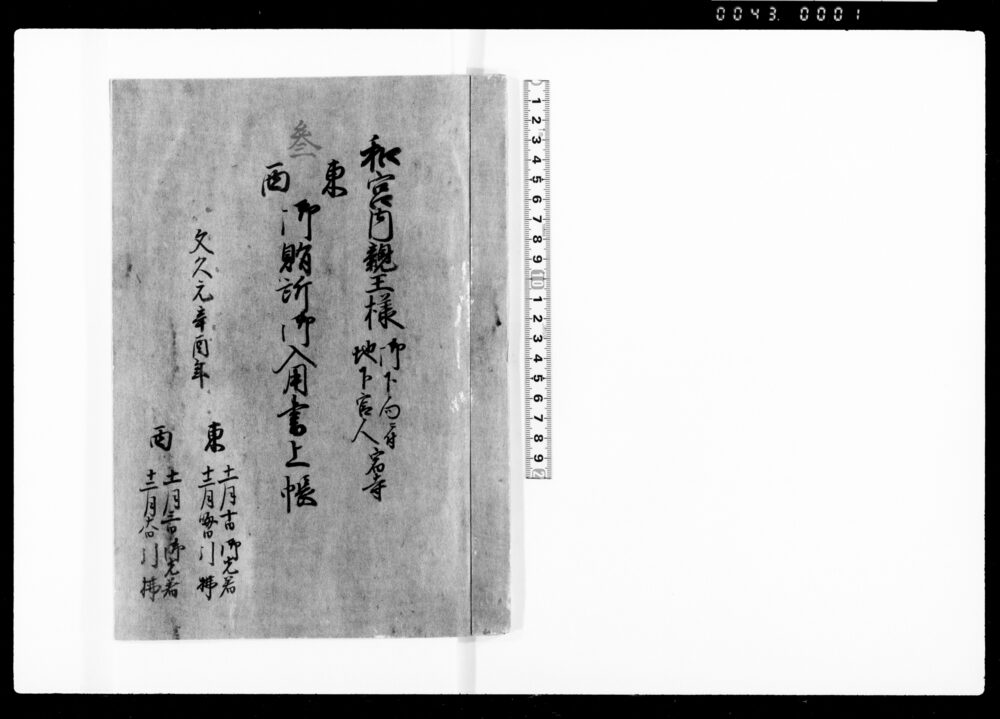 0043. 0001
和宮内親王様 御下向ニ付
地下官人宿寺
参
東
西
御賄所御入用書上帳
文久元辛酉年
東
十一月十日御先着
十二月晦日引拂
西
十一月
御先着
十二月
引拂
1 2 3 4 5 6 7 8 9 10 1 2 3 4 5 6 7 8 9 2